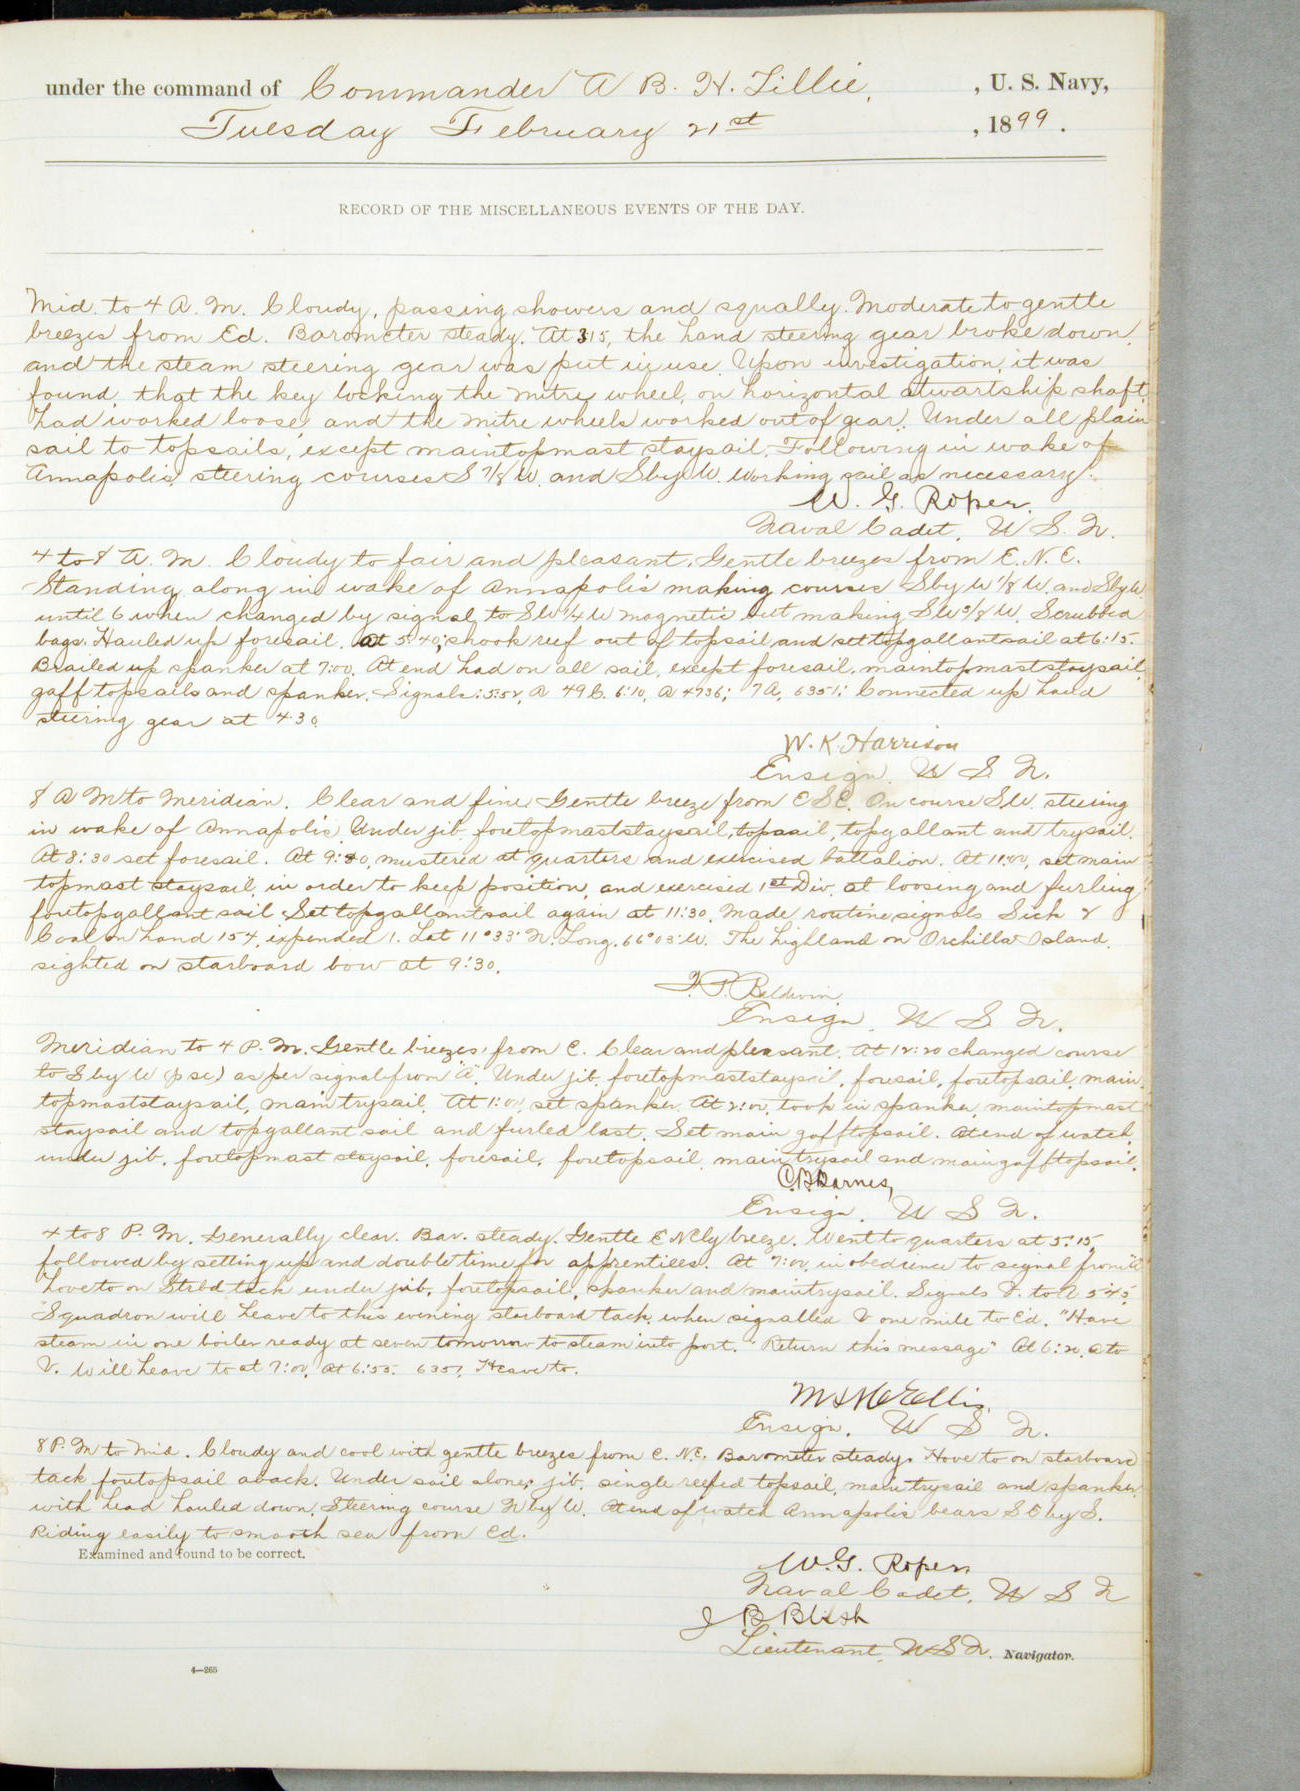 under the command of Commander A. B. H. Lillie, , U. S. Navy,
Tuesday February 21st , 1899.
RECORD OF THE MISCELLANEOUS EVENTS OF THE DAY.
Mid. to 4 A. M. Cloudy, passing showers and squally. Moderate to gentle
breezes from Ed. Barometer steady. At 315, the hand steering gear broke down,
and the steam steering gear was put in use. Upon investigation, it was
found, that the key locking the mitre wheel, on horizontal atwartship shaft,
had worked loose, and the mitre wheels worked out of gear. Under all plain
sail to topsails, except maintopmast staysail. Following in wake of
Annapolis, steering courses S 7/8 W. and S by W. working sail as necessary.
W. G. Roper.
Naval Cadet, U. S. N.
4 to 8 A. M. Cloudy to fair and pleasant. Gentle breezes from E. N. E.
Standing along in wake of Annapolis making courses S by W 1/8 W. and S by W
until 6 when changed by signal to SW 1/4 W magnetic but making SW 3/8 W. Scrubbed
bags. Hauled up foresail. At 5:40, shook reef out of topsail and set topgallantsail at 6:15.
Brailed up spanker at 7:00. At end had on all sail, except foresail, maintopmast staysail,
gaff topsails and spanker. Signals: 5:52, A 49 C. 6:10, A 4736; 7 A, 6351; Connected up hand
steering gear at 430.
W. K. Harrison
Ensign, U S N.
8 A M to Meridian. Clear and fine. Gentle breeze from ESE. On course SW. steering
in wake of Annapolis. Under jib, foretopmaststaysail, topsail, topgallant and trysail.
At 8:30 set foresail. At 9:30, mustered at quarters and exercised battalion. At 11:00, set main
topmast staysail, in order to keep position, and exercised 1st Div. at loosing and furling
foretopgallant sail. Set topgallantsail again at 11:30. Made routine signals Sick 2
Coal on hand 154, expended 1. Lat 11°33' N. Long. 66°03' W. The highland on Orchilla Island,
sighted on starboard bow at 9:30.
F. P. Baldwin.
Ensign, U S N.
Meridian to 4 P. M. Gentle breezes from E. Clear and pleasant. At 12:20 changed course
to S by W (p s c) as per signal from "A". Under jib, foretopmaststaysail, foresail, foretopsail, main
topmaststaysail, main trysail. At 1:00, set spanker. At 2:00, took in spanker, maintopmast
staysail and topgallant sail and furled last. Set main gafftopsail. At end of watch
under jib, foretopmast staysail, foresail, foretopsail, main trysail and main gafftopsail.
C. B. Barnes,
Ensign, U S N.
4 to 8 P. M. Generally clear. Bar. steady. Gentle ENEly breeze. Went to quarters at 5:15,
followed by setting up and double time for apprentices. At 7:00, in obedience to signal from "A"
hove to on Strbd tack under jib, foretopsail, spanker and maintrysail. Signals V. to A 5:45,
Squadron will heave to this evening starboard tack, when signalled V one mile to Ed. "Have
steam in one boiler ready at seven tomorrow to steam into port. "Return this message" At 6:20, A to
V. Will heave to at 7:00. At 6:55. 6351, Heave to.
Ensign, U S N.
8 P. M to Mid. Cloudy and cool with gentle breezes from E. N. E. Barometer steady. Hove to on starboard
tack foretopsail aback. Under sail alone; jib, single reefed topsail, main trysail and spanker
with head hauled down. Steering course N by W. At end of watch Annapolis bears SE by S.
Riding easily to smooth sea from Ed.
Examined and found to be correct.
W. G. Roper
Naval Cadet, U S N
J B Blish
Lieutenant, U S N. Navigator.
4—265